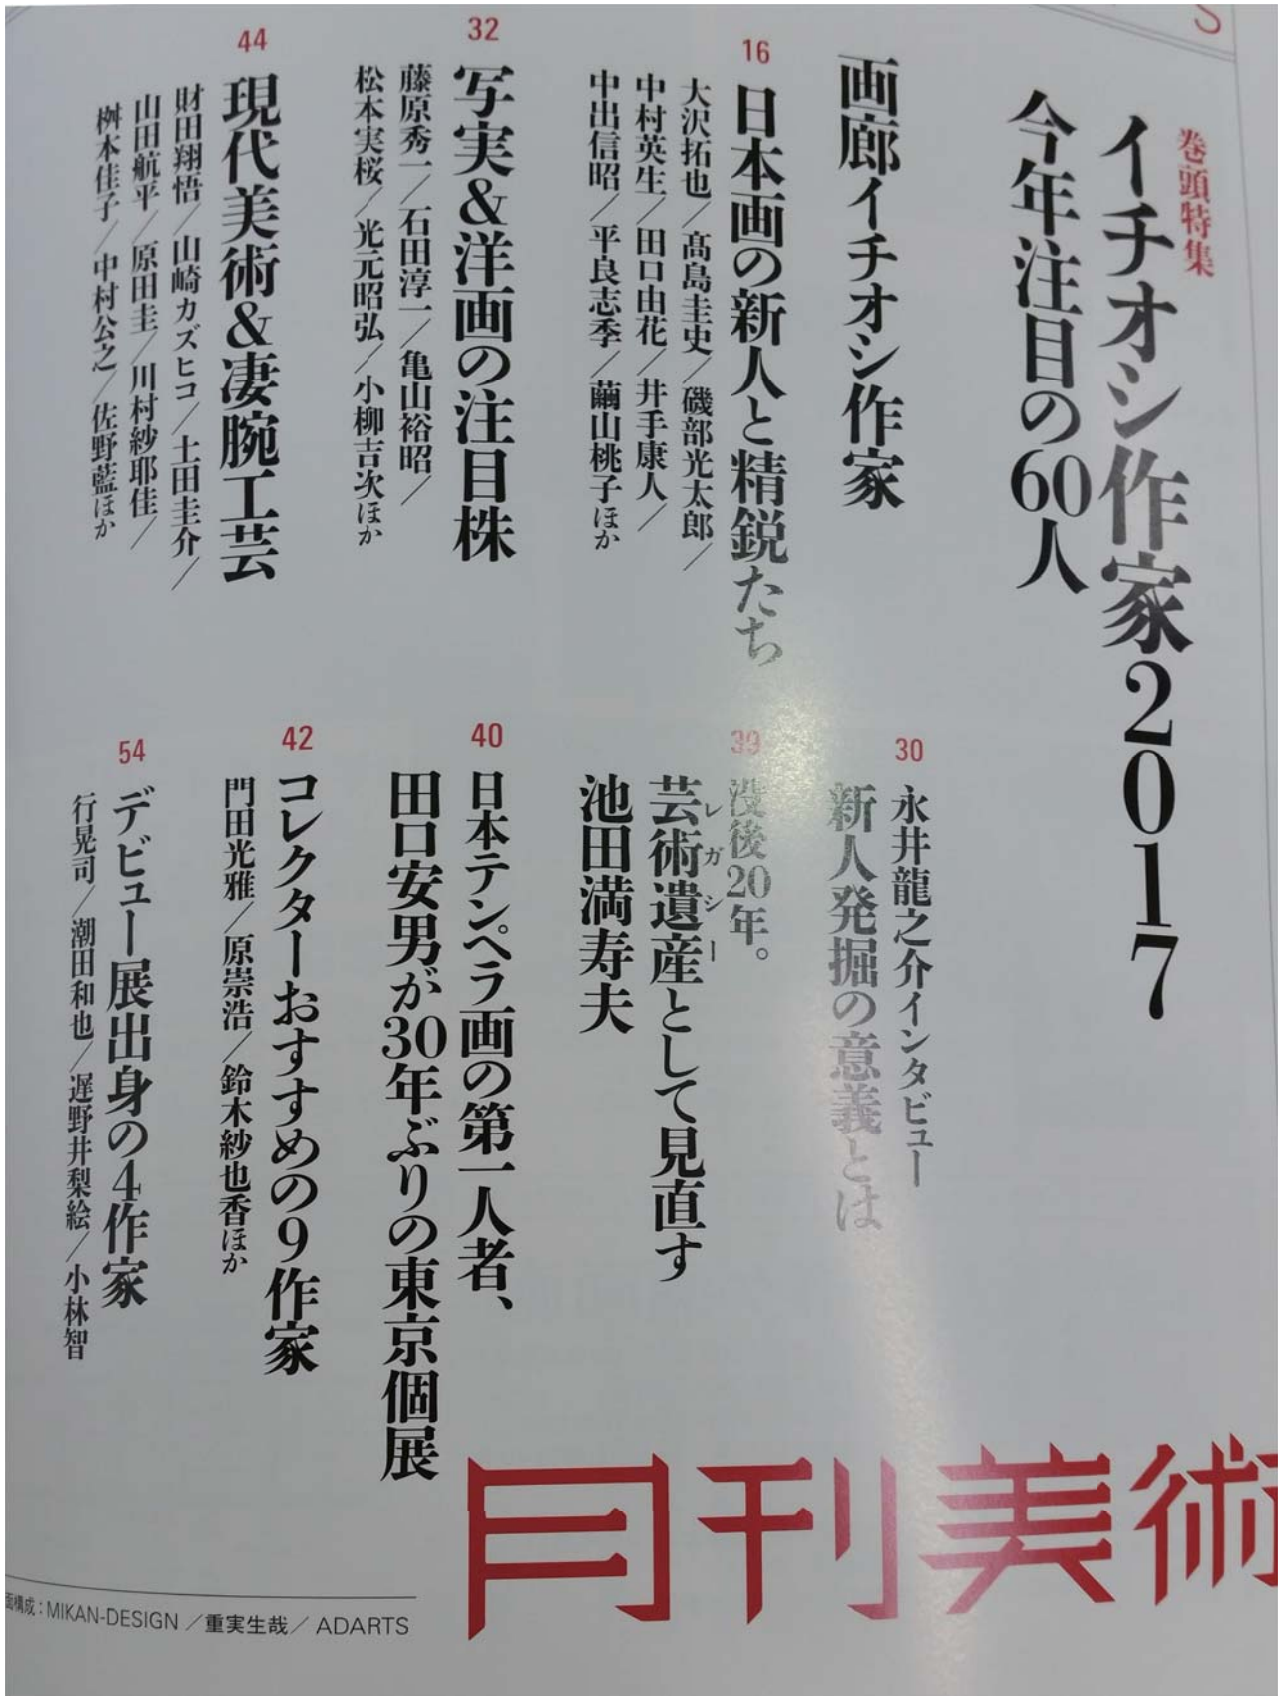 巻頭特集
イチオシ作家2017
今年注目の60人
画廊イチオシ作家
16
日本画の新人と精鋭たち
大沢拓也/髙島圭史/磯部光太郎/
中村英生/田口由花/井手康人/
中出信昭/平良志季/繭山桃子ほか
32
写実&洋画の注目株
藤原秀一/石田淳一/亀山裕昭/
松本実桜/光元昭弘/小柳吉次ほか
44
現代美術&凄腕工芸
財田翔悟/山崎カズヒコ/土田圭介/
山田航平/原田圭/川村紗耶佳/
桝本佳子/中村公之/佐野藍ほか
30
永井龍之介インタビュー
新人発掘の意義とは
39
没後20年。
芸術遺産として見直す
レガシー
池田満寿夫
40
日本テンペラ画の第一人者、
田口安男が30年ぶりの東京個展
42
コレクターおすすめの9作家
門田光雅/原崇浩/鈴木紗也香ほか
54
デビュー展出身の4作家
行晃司/潮田和也/遅野井梨絵/小林智
月刊美術
面構成:MIKAN-DESIGN/重実生哉/ADARTS